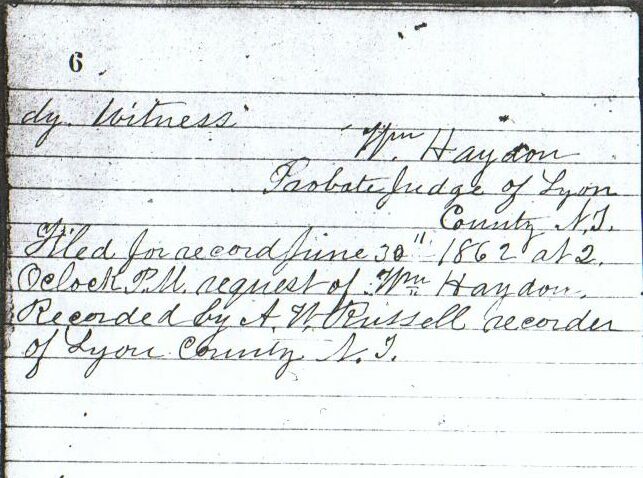 6
dy. Witness
Wm Haydon
Probate Judge of Lyon
County N.T.
Filed for record June 30" 1862 at 2.
Oclock P.M. request of Wm Haydon.
Recorded by A. W. Russell recorder
of Lyon County N.T.